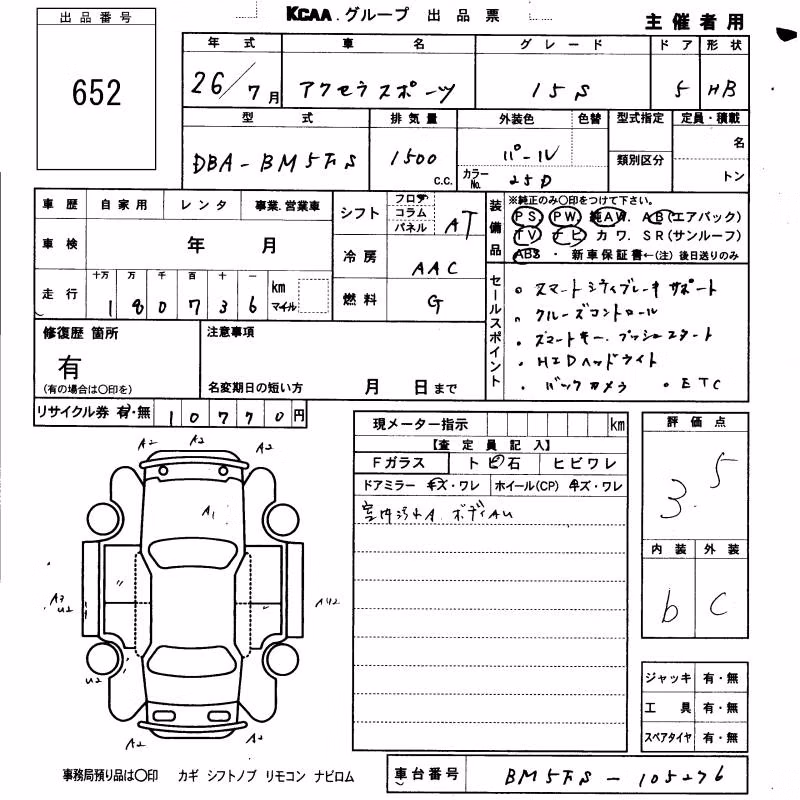 KCAA グループ 出品票
主催者用
出品番号
652
年式 車名 グレード ドア 形状
26/7月 アクセラスポーツ 15S 5 HB
型式 排気量 外装色 色替 型式指定 定員・積載
DBA-BM5FS 1500 C.C. パール 名
カラーNo. 25D 類別区分 トン
車歴 自家用 レンタ 事業.営業車
シフト フロア コラム パネル AT
装備品 ※純正のみ〇印をつけて下さい。
PS PW 純AW. AB(エアバック)
TV ナビ カワ. SR(サンルーフ)
ABS ・ 新車保証書←(注) 後日送りのみ
車検 年 月
冷房 AAC
走行 十万 万 千 百 十 一
1 8 0 7 3 6 km マイル
燃料 G
セールスポイント
・スマートシティブレーキサポート
・クルーズコントロール
・スマートキー.プッシュスタート
・HIDヘッドライト
・バックカメラ ・ETC
修復歴 箇所
有
(有の場合は〇印を)
注意事項
名変期日の短い方 月 日まで
リサイクル券 有・無 10770円
現メーター指示 km
【査定員記入】
Fガラス トビ石 ヒビワレ
ドアミラー キズ・ワレ ホイール(CP) キズ・ワレ
室内汚れA. ボディAU
評価点
3.5
内装 外装
b C
A2 A2 A2
A1
〃
A3 U2
AU2
U2
A2 A2
ジャッキ 有・無
工具 有・無
スペアタイヤ 有・無
事務局預り品は〇印 カギ シフトノブ リモコン ナビロム
車台番号 BM5FS-105276